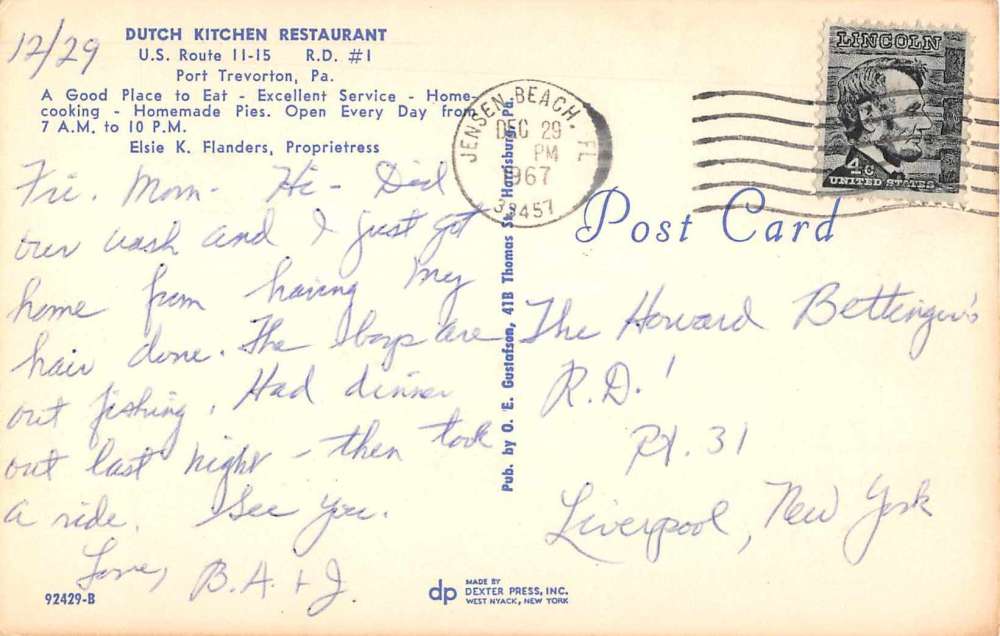 12/29
DUTCH KITCHEN RESTAURANT
U.S. Route 11-15 R.D. #1
Port Trevorton, Pa.
A Good Place to Eat - Excellent Service - Home-
cooking - Homemade Pies. Open Every Day from
7 A.M. to 10 P.M.
Elsie K. Flanders, Proprietress
Fri. Mom - Hi - Did
our wash and I just got
home from having my
hair done. The boys are
out fishing. Had dinner
out last night - then took
a ride. See you.
Love, B.A. + J.
92429-B
Pub. by O. E. Gustafson, 41B Thomas St., Harrisburg, Pa.
dp MADE BY
DEXTER PRESS, INC.
WEST NYACK, NEW YORK
JENSEN BEACH, FL
DEC 29
PM
1967
33457
LINCOLN
4¢
UNITED STATES
Post Card
The Howard Bettinger's
R.D. 1
Rt. 31
Liverpool, New York